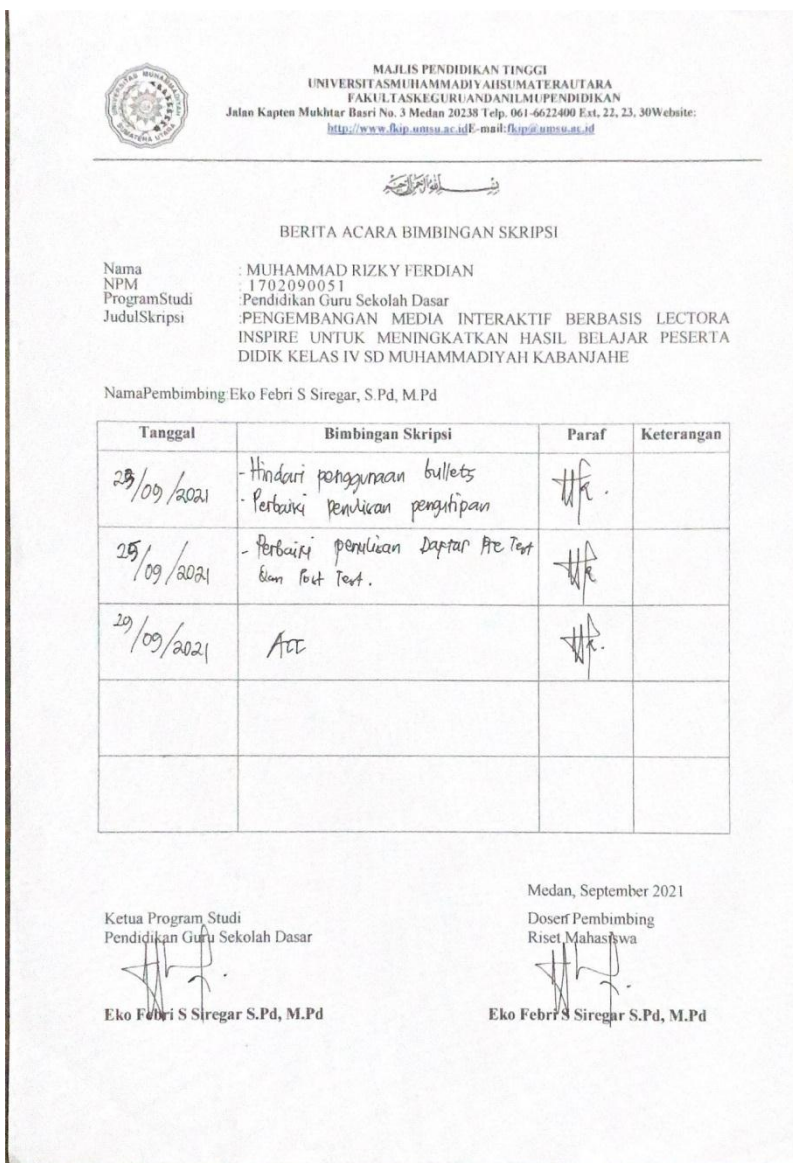 MAJLIS PENDIDIKAN TINGGI
UNIVERSITASMUHAMMADIYAHSUMATERAUTARA
FAKULTASKEGURUANDANILMUPENDIDIKAN
Jalan Kapten Mukhtar Basri No. 3 Medan 20238 Telp. 061-6622400 Ext, 22, 23, 30Website:
http://www.fkip.umsu.ac.idE-mail:fkip@umsu.ac.id
BERITA ACARA BIMBINGAN SKRIPSI
Nama : MUHAMMAD RIZKY FERDIAN
NPM : 1702090051
ProgramStudi :Pendidikan Guru Sekolah Dasar
JudulSkripsi :PENGEMBANGAN MEDIA INTERAKTIF BERBASIS LECTORA
INSPIRE UNTUK MENINGKATKAN HASIL BELAJAR PESERTA
DIDIK KELAS IV SD MUHAMMADIYAH KABANJAHE
NamaPembimbing:Eko Febri S Siregar, S.Pd, M.Pd
Tanggal Bimbingan Skripsi Paraf Keterangan
/09/2021 - Hindari penggunaan bullets
- Perbaiki penulisan pengutipan
25/09/2021 - Perbaiki penulisan Daftar Pre Test
dan Post Test.
29/09/2021 Acc
Medan, September 2021
Ketua Program Studi Dosen Pembimbing
Pendidikan Guru Sekolah Dasar Riset Mahasiswa
Eko Febri S Siregar S.Pd, M.Pd Eko Febri S Siregar S.Pd, M.Pd